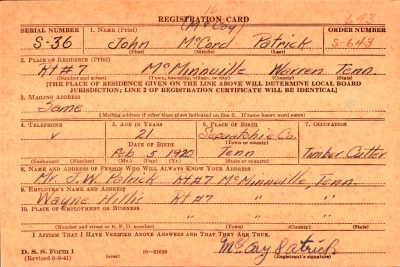 REGISTRATION CARD
(McCoy)
SERIAL NUMBER 1. NAME (Print) ORDER NUMBER
S-36 John McCord Patrick S-643
(First) (Middle) (Last)
2. PLACE OF RESIDENCE (Print)
Rt #7 McMinnville Warren Tenn
(Number and street) (Town, township, village, or city) (County) (State)
[THE PLACE OF RESIDENCE GIVEN ON THE LINE ABOVE WILL DETERMINE LOCAL BOARD
JURISDICTION; LINE 2 OF REGISTRATION CERTIFICATE WILL BE IDENTICAL]
3. MAILING ADDRESS
Same
[Mailing address if other than place indicated on line 2. If same insert word same]
4. TELEPHONE 5. AGE IN YEARS 6. PLACE OF BIRTH 7. OCCUPATION
21 Sequatchie Co.
DATE OF BIRTH (Town or county)
Feb 5 1920 Tenn Timber Cutter
(Exchange) (Number) (Mo.) (Day) (Yr.) (State or country)
8. NAME AND ADDRESS OF PERSON WHO WILL ALWAYS KNOW YOUR ADDRESS
Mr. J. W. Patrick Rt #7 McMinnville Tenn.
9. EMPLOYER'S NAME AND ADDRESS
Wayne Hillis Rt #7 " "
10. PLACE OF EMPLOYMENT OR BUSINESS
" " "
(Number and street or R. F. D. number) (Town) (County) (State)
I AFFIRM THAT I HAVE VERIFIED ABOVE ANSWERS AND THAT THEY ARE TRUE.
D. S. S. Form 1
(Revised 6-9-41) (over) 16-21630 (Registrant's signature)
Patrick